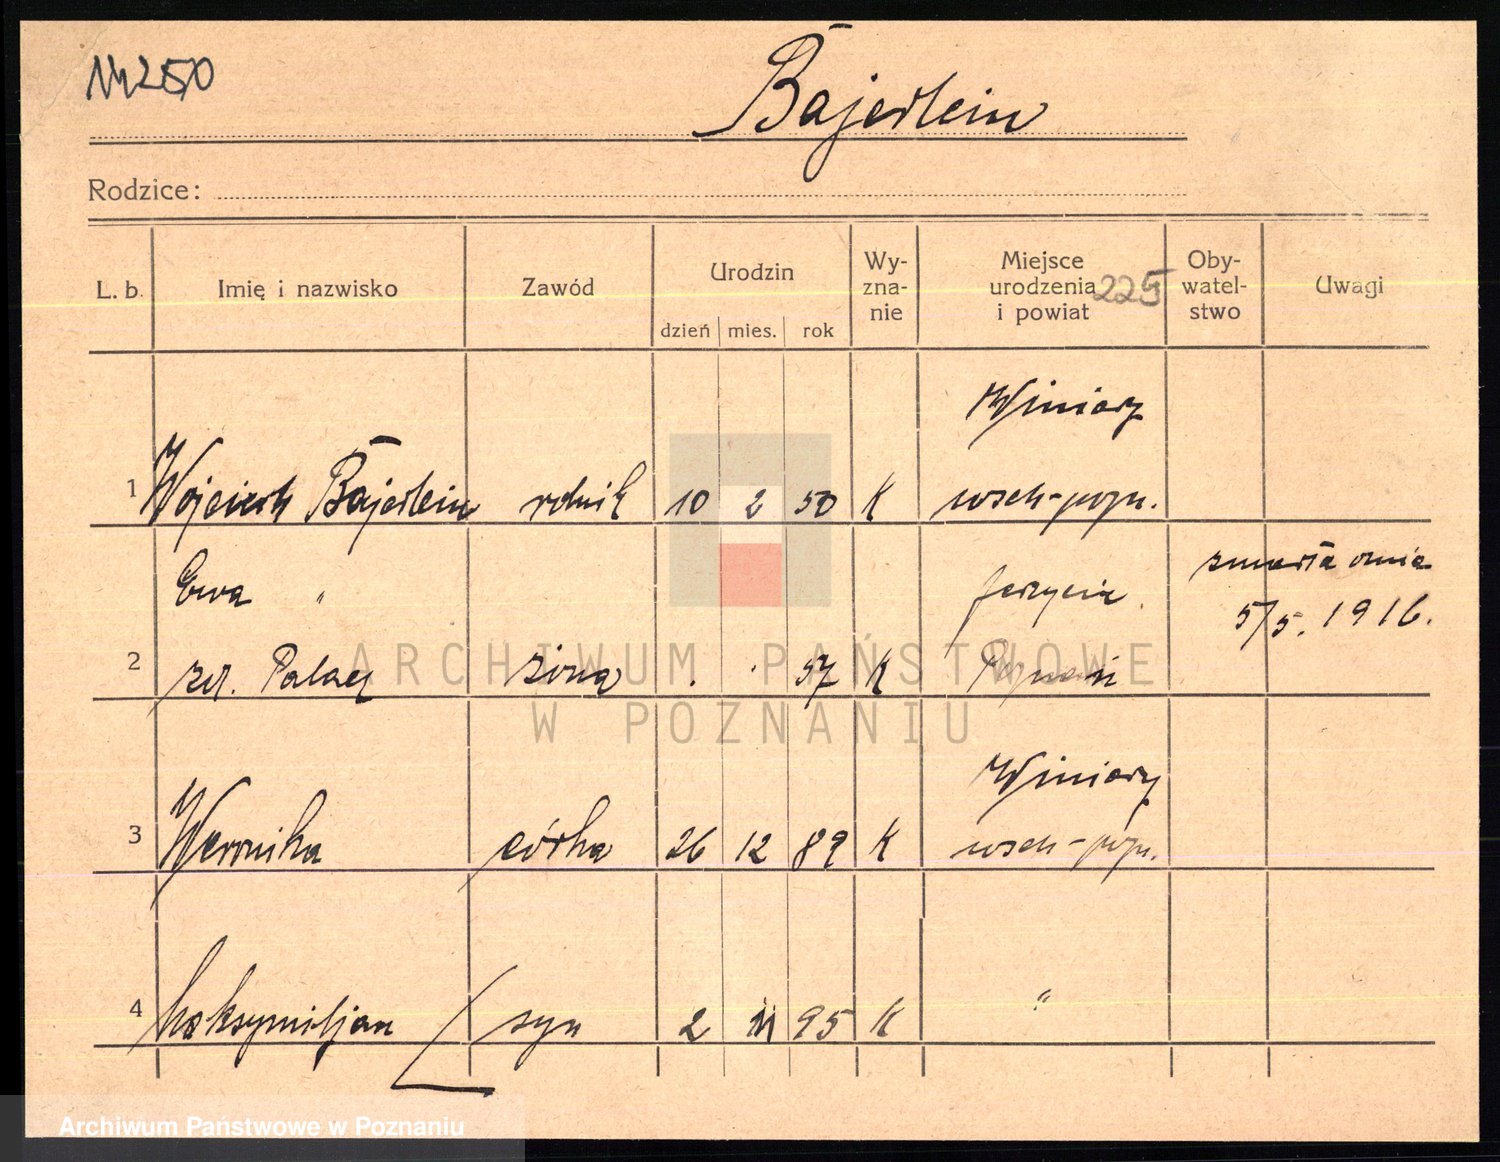 14250
Bajerlein
Rodzice:
L. b. Imię i nazwisko Zawód Urodzin dzień mies. rok Wy-zna-nie Miejsce urodzenia i powiat 225 Oby-watel-stwo Uwagi
Winiary
1 Wojciech Bajerlein rolnik 10 2 50 K wsch-pozn.
Ewa " Jerzyce zmarła dnia
5/5. 1916.
2 żona . . 57 K Poznań
Winiary
3 Weronika córka 26 12 89 K wsch-pozn.
4 Maksymiljan syn 2 11 95 K "
ARCHIWUM PAŃSTWOWE
W POZNANIU
Archiwum Państwowe w Poznaniu